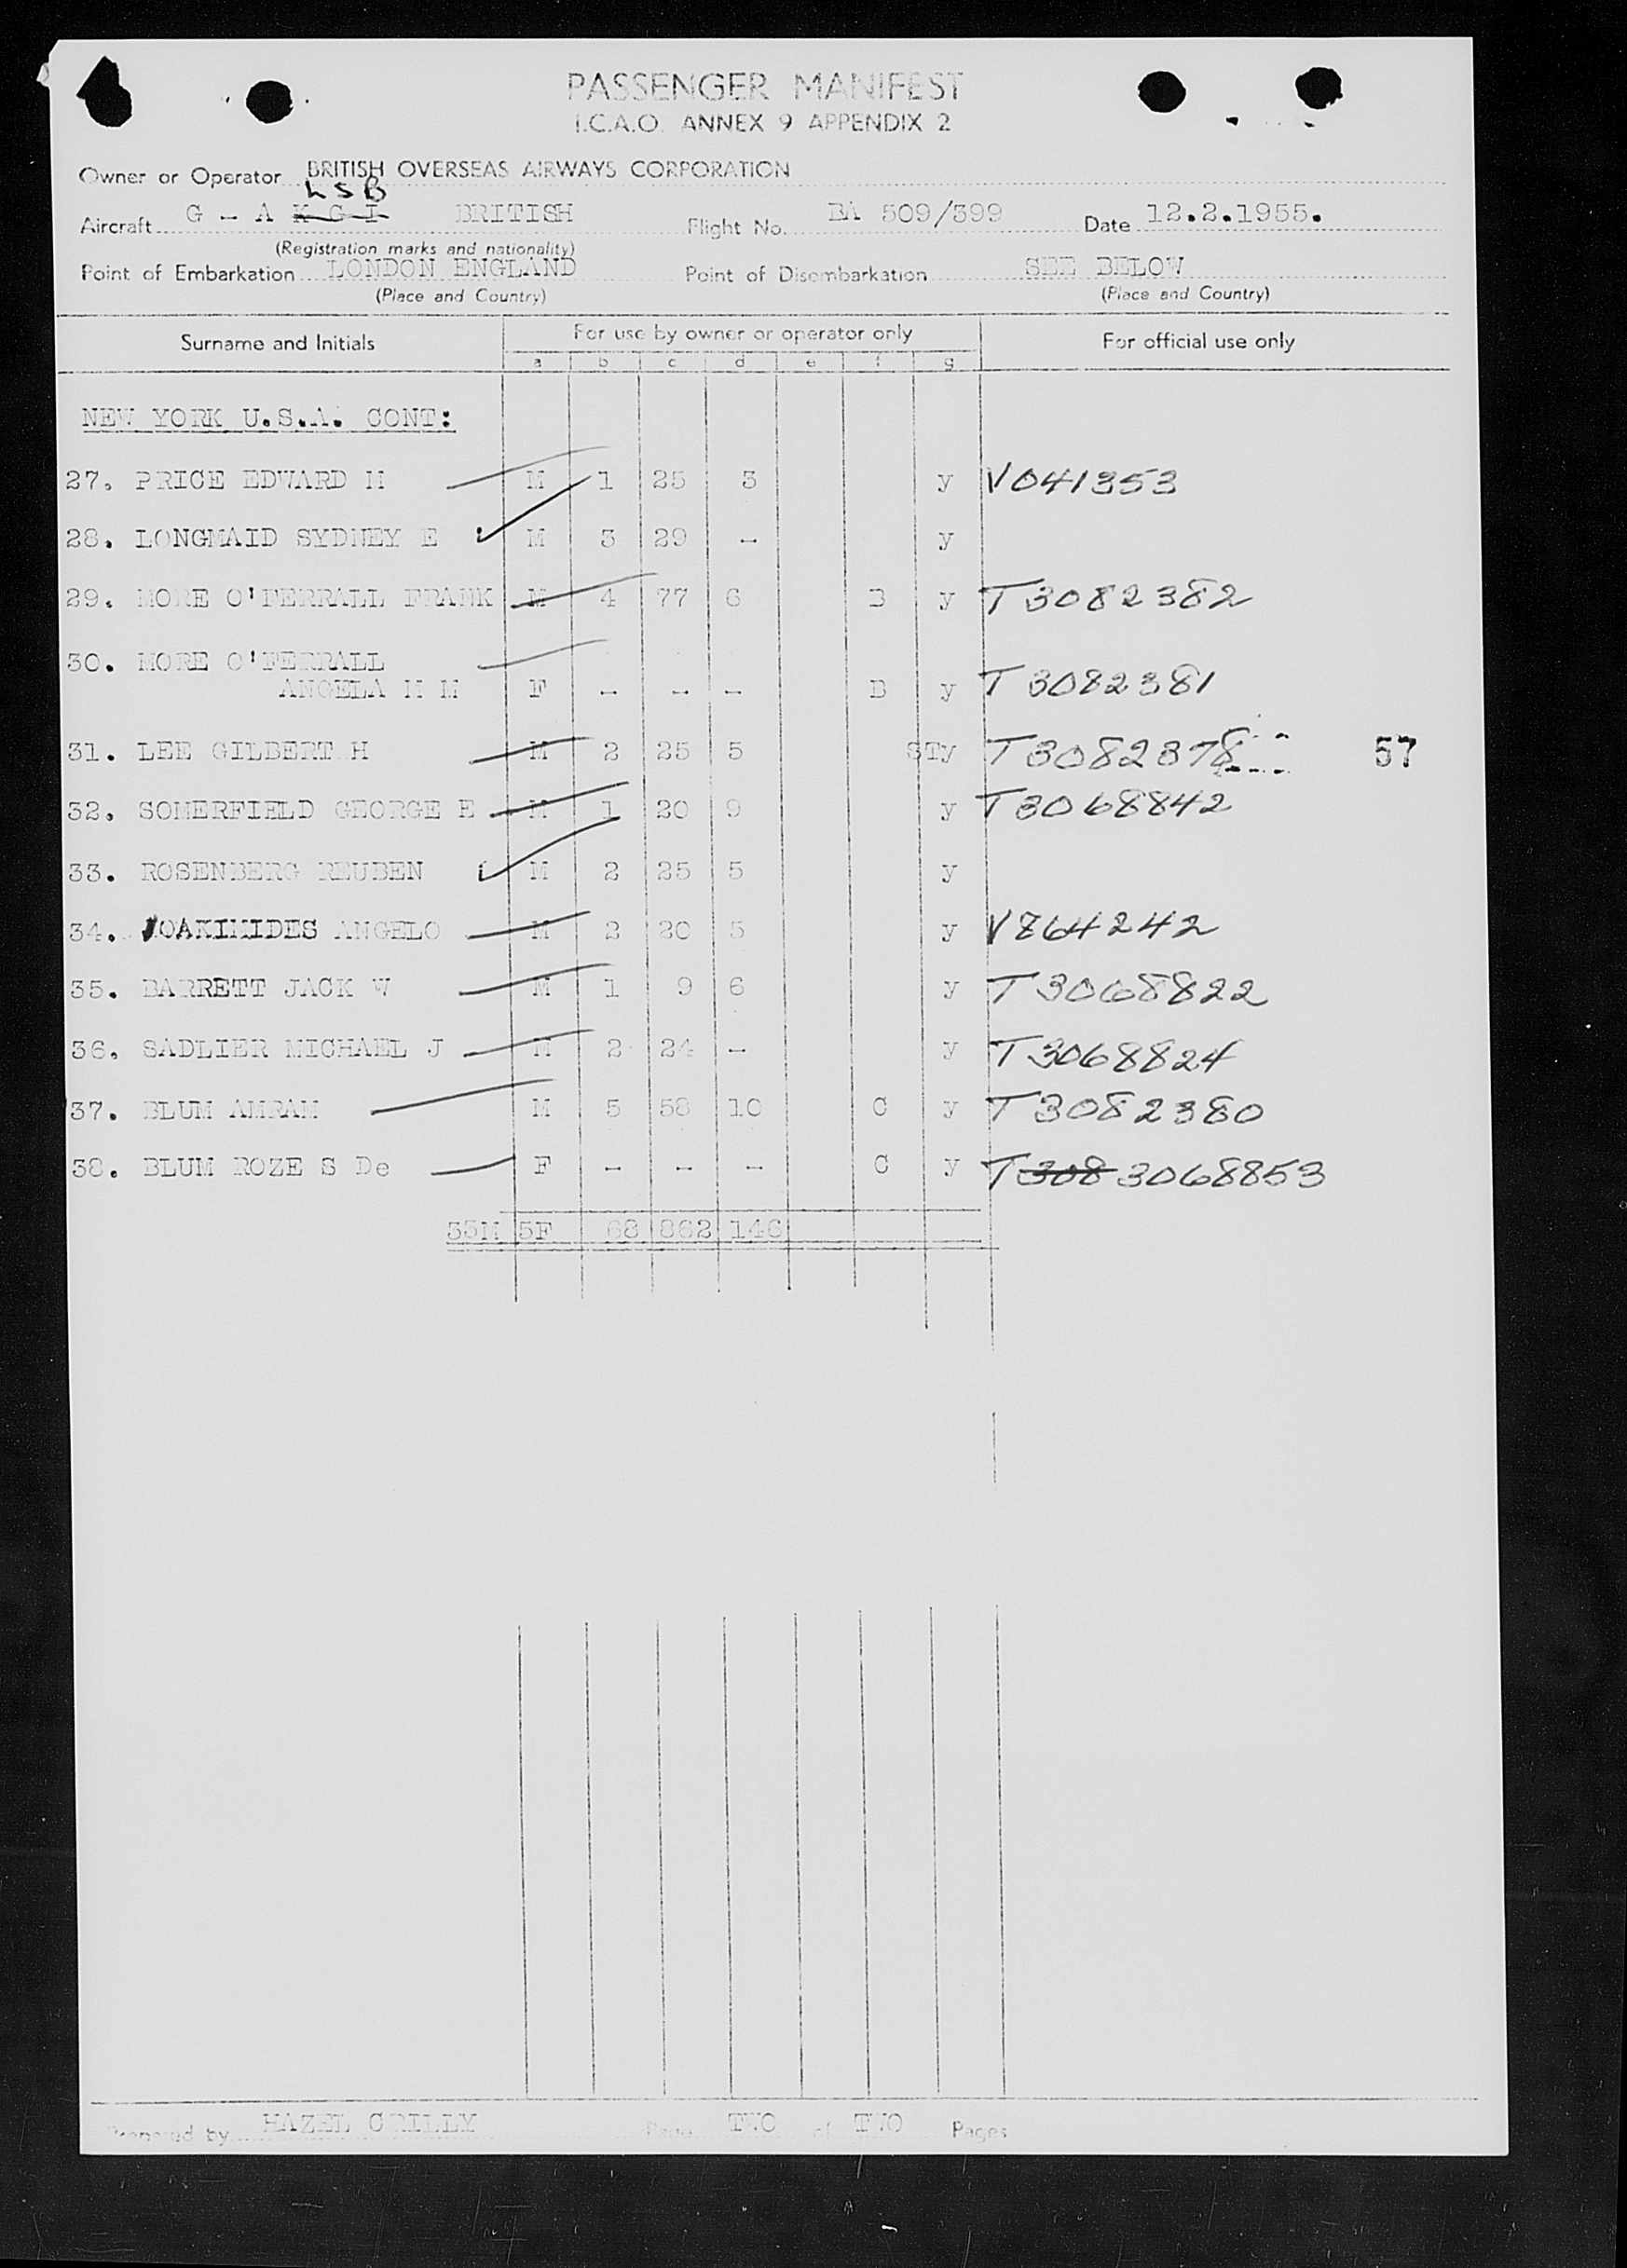 PASSENGER MANIFEST
I.C.A.O. ANNEX 9 APPENDIX 2
Owner or Operator BRITISH OVERSEAS AIRWAYS CORPORATION
LSB
Aircraft G - A K G I BRITISH Flight No. BA 509/399 Date 12.2.1955.
(Registration marks and nationality)
Point of Embarkation LONDON ENGLAND Point of Disembarkation SEE BELOW
(Place and Country) (Place and Country)
Surname and Initials For use by owner or operator only For official use only
a b c d e f g
NEW YORK U.S.A. CONT:
27. PRICE EDWARD M M 1 25 3 y V041353
28. LONGMAID SYDNEY E M 3 29 - y
29. MORE O'FERRALL FRANK M 4 77 6 B y T3082382
30. MORE O'FERRALL
ANGELA M M F - - - B y T3082381
31. LEE GILBERT H M 2 25 5 STy T3082378 57
32. SOMERFIELD GEORGE E M 1 20 9 y T3068842
33. ROSENBERG REUBEN M 2 25 5 y
34. JOAKIMIDES ANGELO M 2 20 5 y V864242
35. BARRETT JACK W M 1 9 6 y T3068822
36. SADLIER MICHAEL J M 2 24 - y T3068824
37. BLUM AMRAM M 5 58 10 C y T3082380
38. BLUM ROZE S De F - - - C y T308 3068853
33M 5F 68 862 146
Prepared by HAZEL Page TWO of TWO Pages